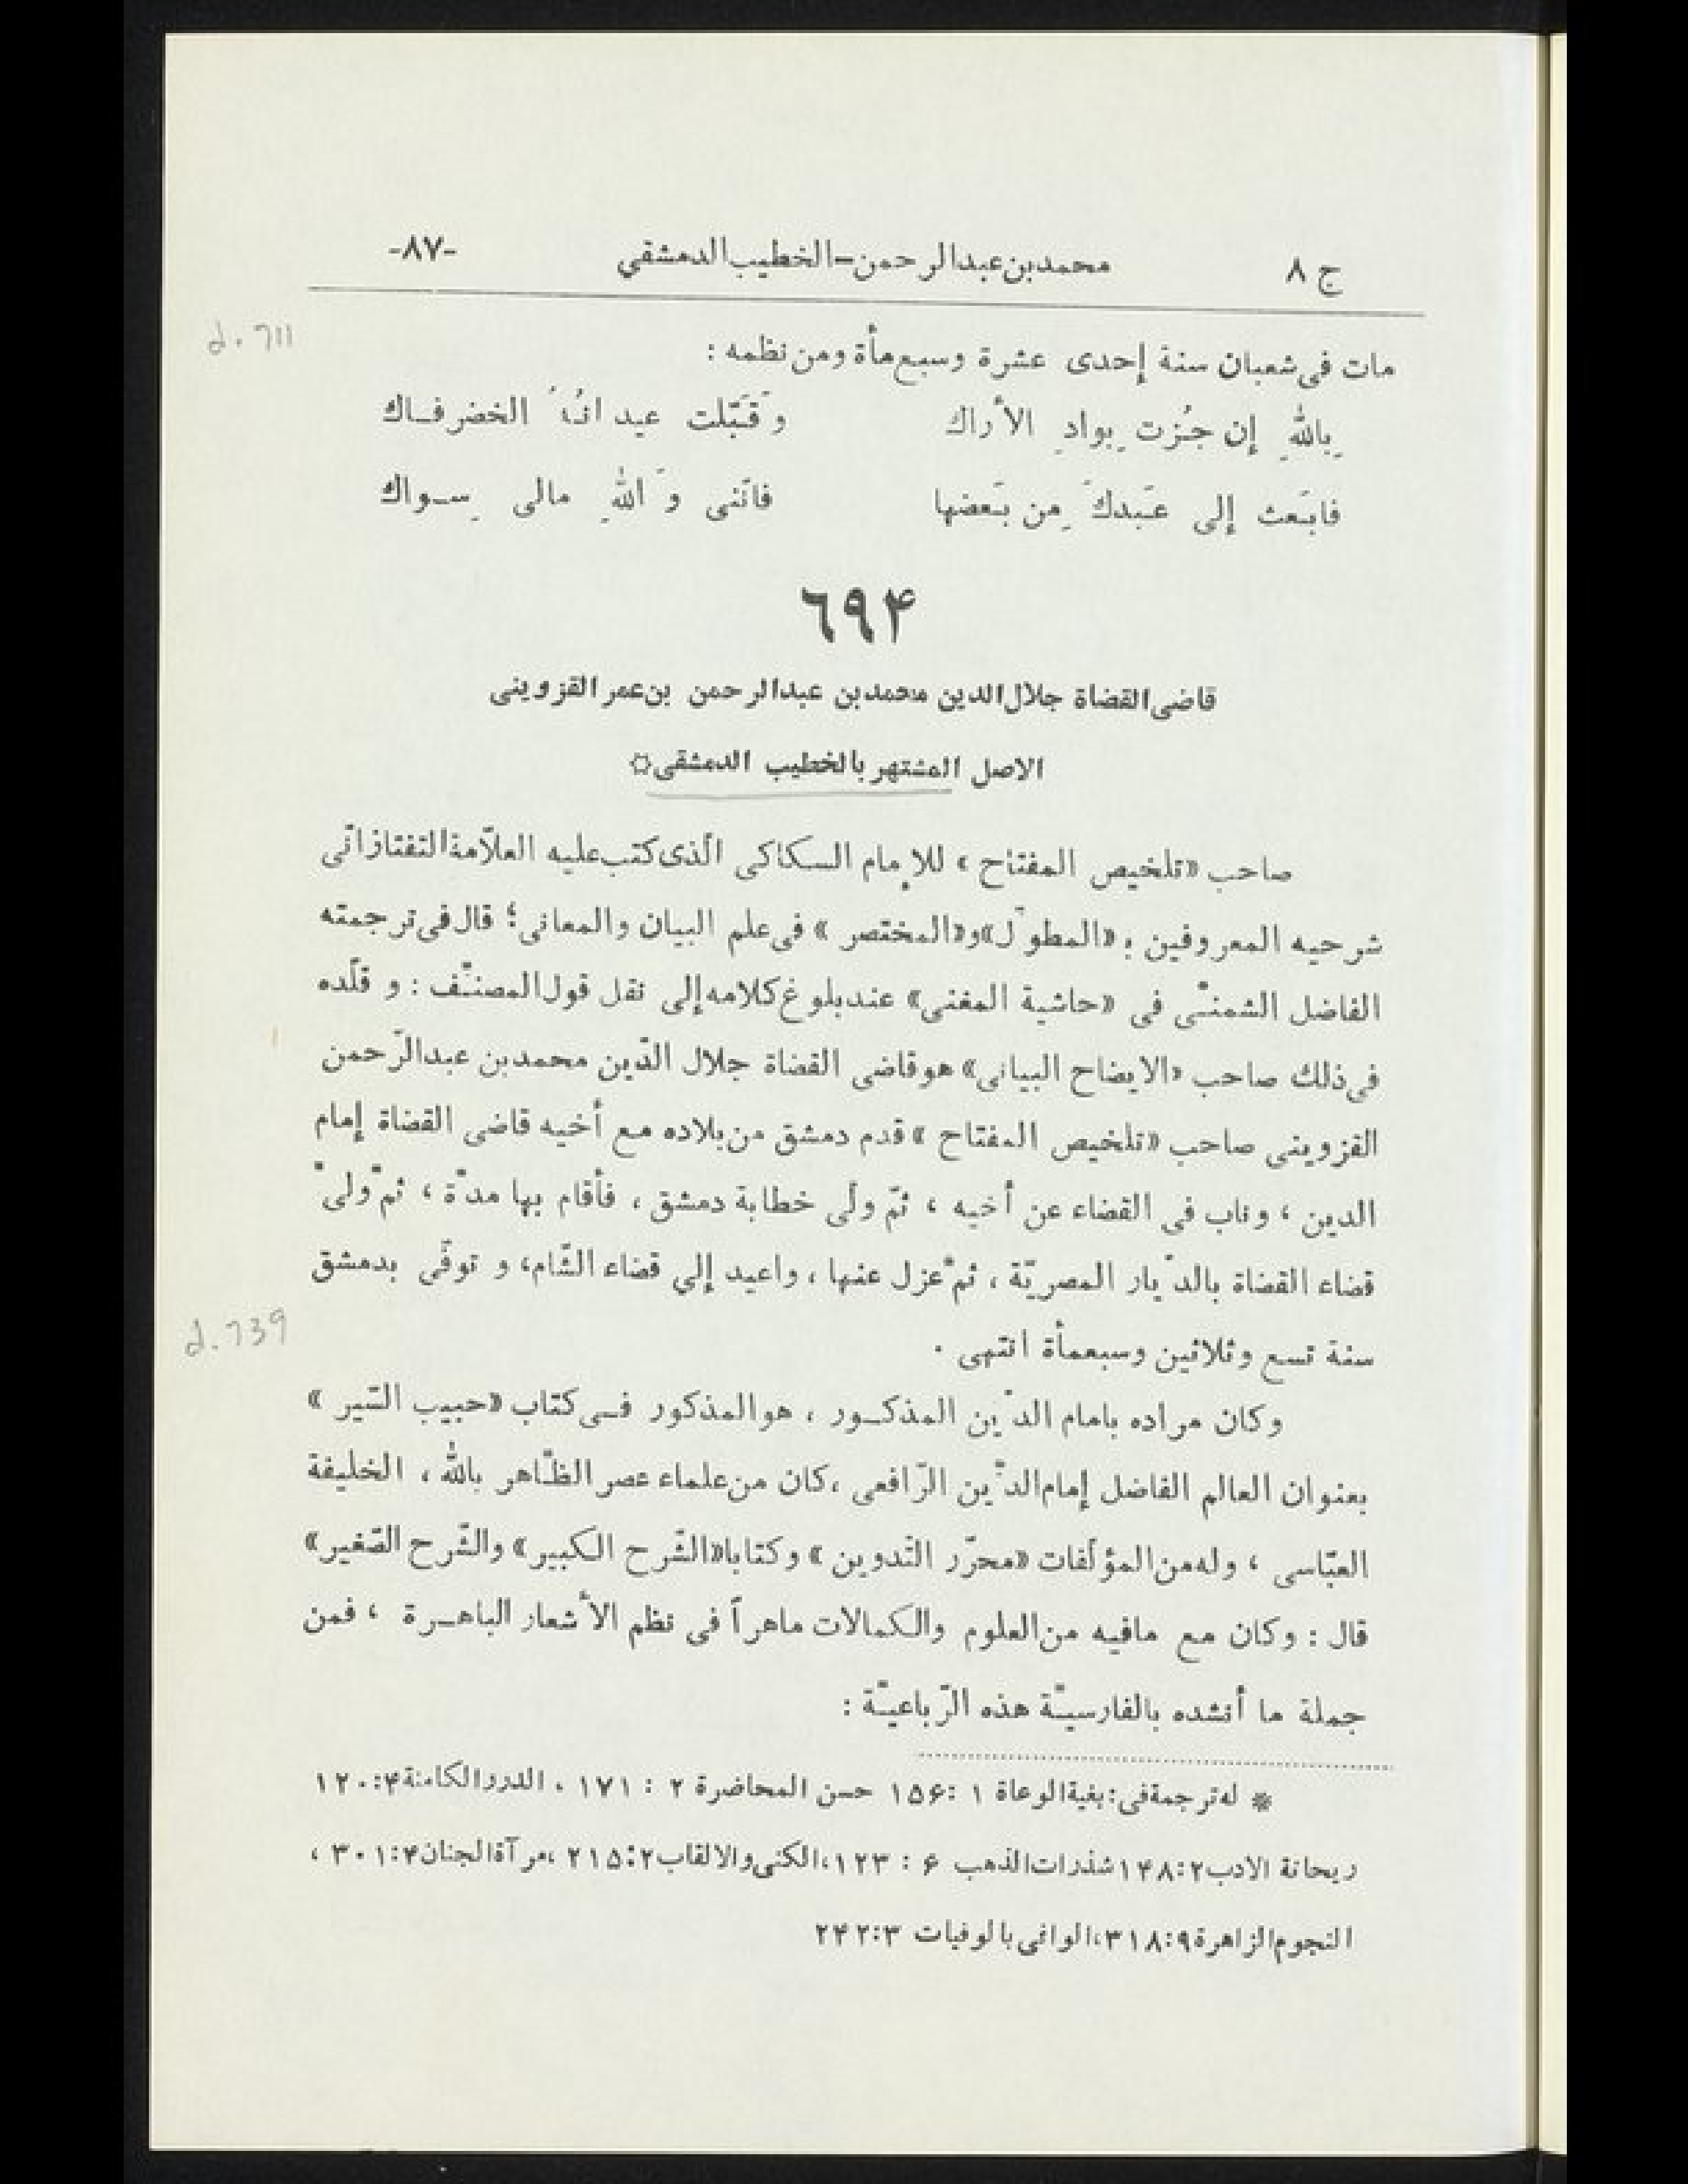 ج ٨ محمدبن عبدالرحمن–الخطيب الدمشقي -٨٧-
d. 711
مات فى شعبان سنة إحدى عشرة وسبع مأة ومن نظمه :
بِاللهِ إن جُزت بِوادِ الأراك وَقَبّلت عيدانُهُ الخضر فــاك
فابَعث إلى عَبدكَ مِن بَعضها فاتنى وَاللهِ مالى سِــواك
٦٩۴
قاضى القضاة جلال الدين محمدبن عبدالرحمن بن عمر القزوينى
الاصل المشتهر بالخطيب الدمشقى ☼
صاحب «تلخيص المفتاح» للإمام السكاكى الّذى كتب عليه العلاّمة التفتازانّى
شرحيه المعروفين بـ «المطوّل» و«المختصر» فى علم البيان والمعانى؛ قال فى ترجمته
الفاضل الشمنـّى فى «حاشية المغنى» عند بلوغ كلامه إلى نقل قول المصنّف : و قلّده
فى ذلك صاحب «الايضاح البيانى» هو قاضى القضاة جلال الدّين محمدبن عبدالرّحمن
القزوينى صاحب «تلخيص المفتاح» قدم دمشق من بلاده مع أخيه قاضى القضاة إمام
الدين ، وناب فى القضاء عن أخيه ، ثمّ ولّى خطابة دمشق ، فأقام بها مدّة ، ثمّ ولىّ
قضاء القضاة بالدّيار المصريّة ، ثمّ عزل عنها ، واعيد إلى قضاء الشّام، و توفّى بدمشق
d. 739
سنة تسع وثلاثين وسبعمأة انتهى .
وكان مراده بامام الدّين المذكــور ، هو المذكور فــى كتاب «حبيب السّير»
بعنوان العالم الفاضل إمام الدّين الرّافعى ، كان من علماء عصر الظّاهر بالله ، الخليفة
العبّاسى ، وله من المؤلّفات «محرّر التّدوين» وكتابا «الشّرح الكبير» والشّرح الصّغير»
قال : وكان مع مافيه من العلوم والكمالات ماهراً فى نظم الأشعار الباهــرة ، فمن
جملة ما أنشده بالفارسيـّة هذه الرّباعيـّة :
* له ترجمة فى : بغية الوعاة ١ :١۵۶ حسن المحاضرة ٢ : ١٧١ ، الدرر الكامنة ۴:١٢٠
ريحانة الادب ٢:١۴٨ شذرات الذهب ۶ : ١٢٣، الكنى والالقاب ٢:٢١۵ ، مرآة الجنان ۴:٣٠١ ،
النجوم الزاهرة ٩:٣١٨، الوافى بالوفيات ٣:٢۴٢